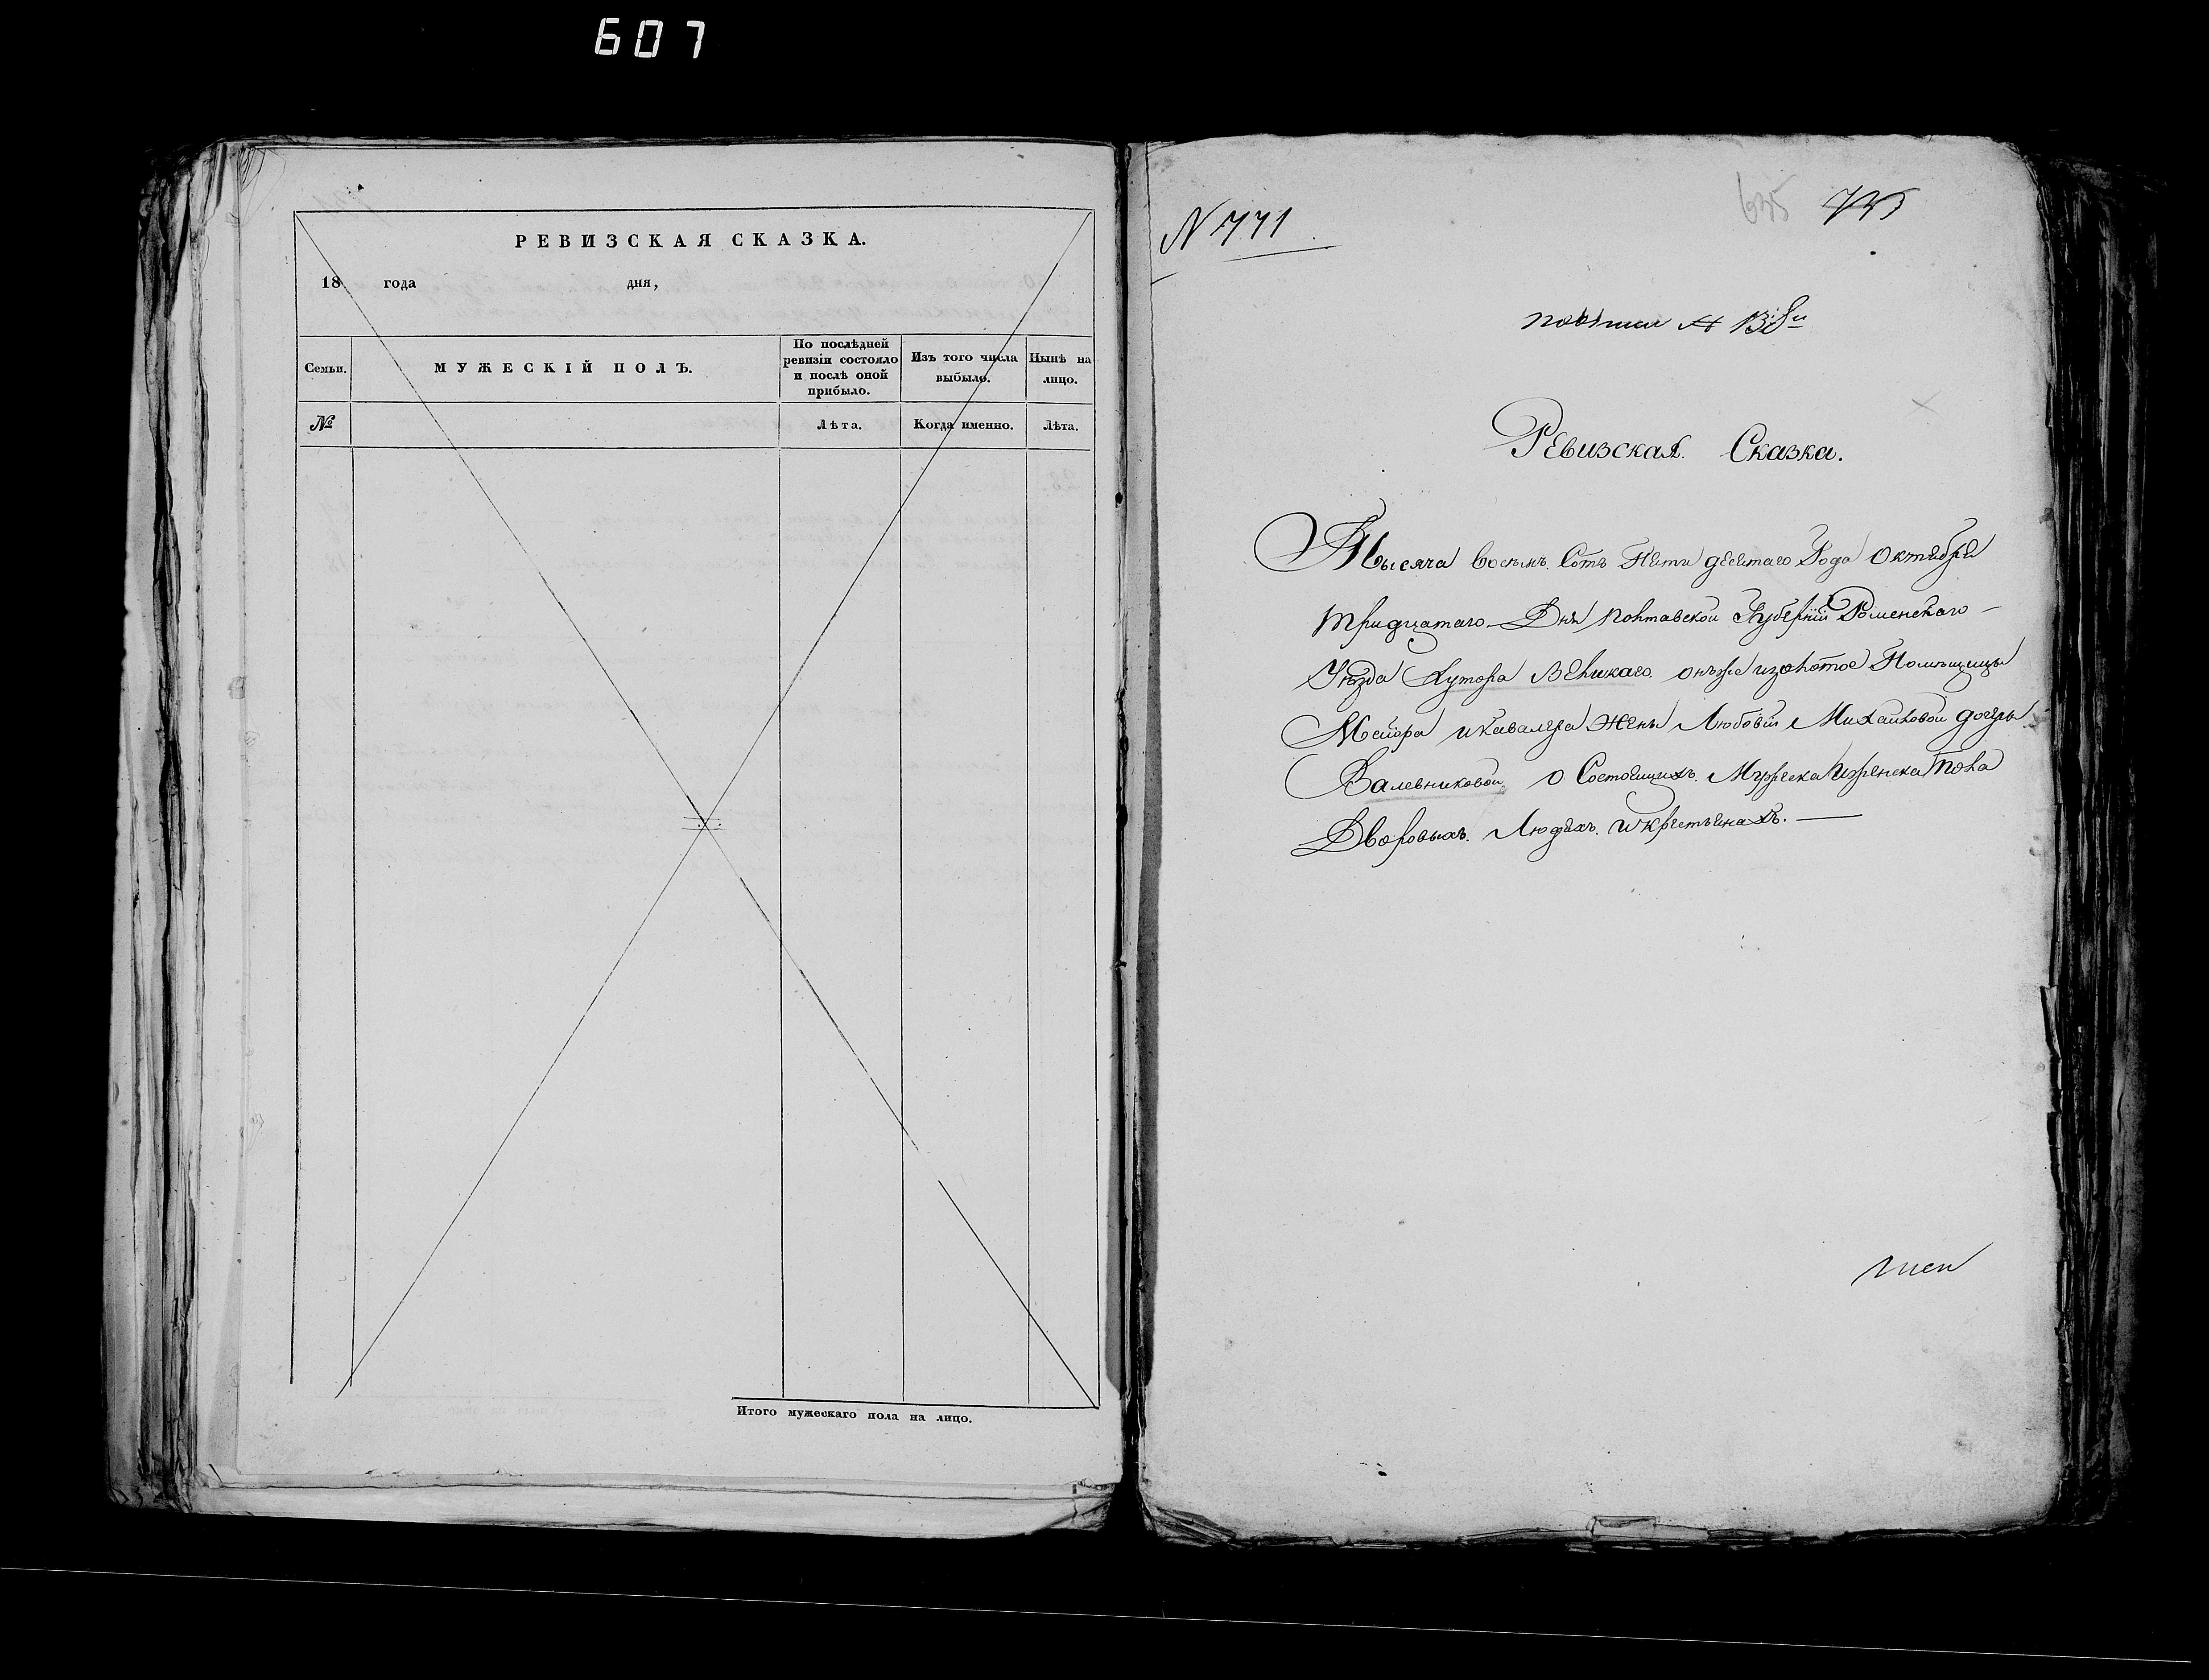 607
РЕВИЗСКАЯ СКАЗКА.
18 года дня,
Семьи.
МУЖЕСКІЙ ПОЛЪ.
По послѣдней ревизіи состояло и послѣ оной прибыло.
Изъ того числа выбыло.
Нынѣ на лицо.
№
Лѣта.
Когда именно.
Лѣта.
Итого мужескаго пола на лицо.
N 771
635
Ревизская Сказка.
Тысяча восемъ Сотъ Пяти десятаго Года Октября
тридцатаго Дня Полтавской Губерніи Роменскаго
Уѣзда Хутора Великаго онъже Помѣщицы
Маіора и Кавалера Жены Любовіи Михайловой дочеры
Валевниковой о Состоящихъ Мужеска и женска пола
Дворовыхъ Людяхъ и крестьянахъ.